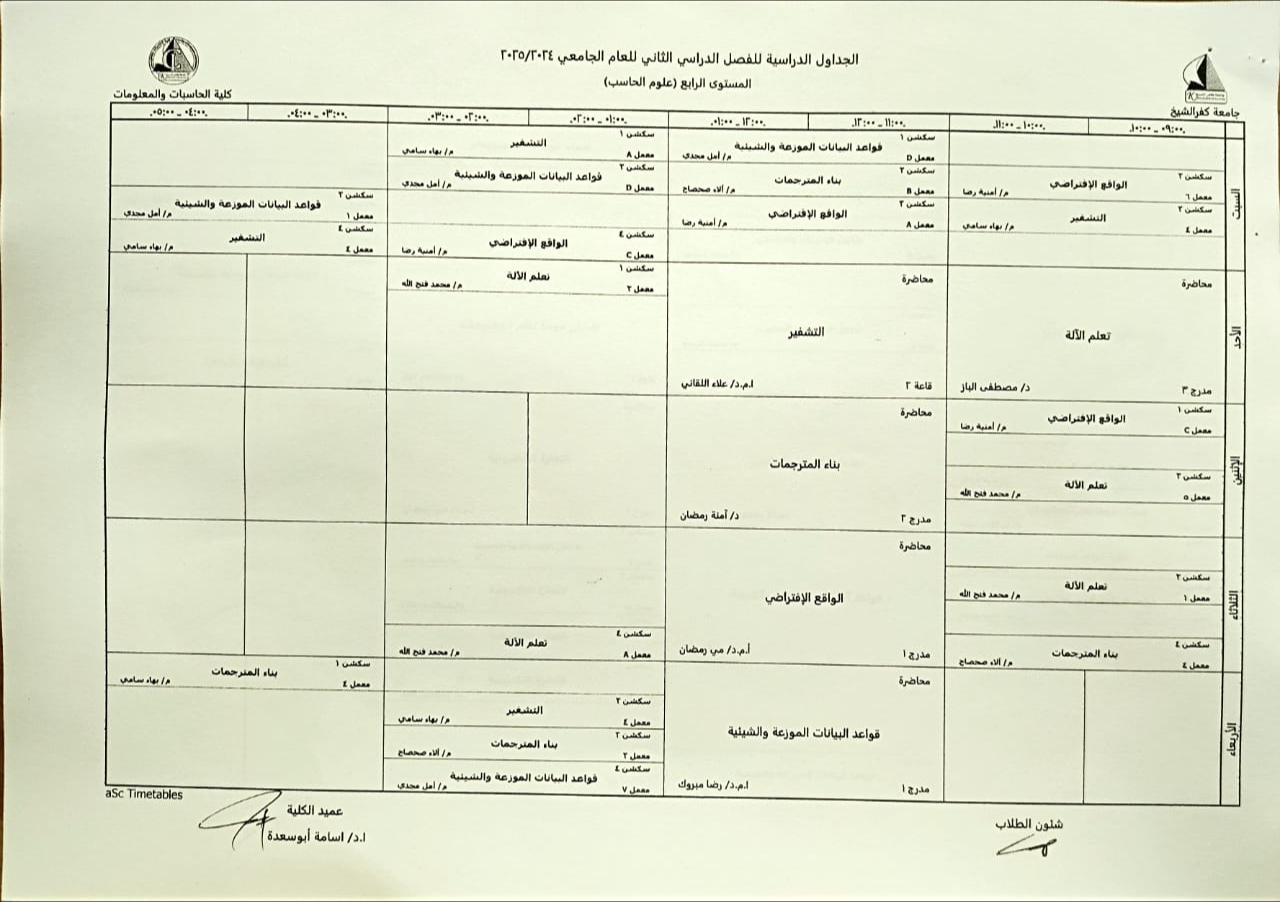 الجداول الدراسية للفصل الدراسي الثاني للعام الجامعي ٢٠٢٥/٢٠٢٤
المستوى الرابع (علوم الحاسب)
جامعة كفرالشيخ
كلية الحاسبات والمعلومات
٠٩:٠٠ - ١٠:٠٠
١٠:٠٠ - ١١:٠٠
١١:٠٠ - ١٢:٠٠
١٢:٠٠ - ٠١:٠٠
٠١:٠٠ - ٠٢:٠٠
٠٢:٠٠ - ٠٣:٠٠
٠٣:٠٠ - ٠٤:٠٠
٠٤:٠٠ - ٠٥:٠٠
السبت
سكشن ٢
الواقع الإفتراضي
معمل ٦
م/ أمنية رضا
سكشن ٣
التشفير
معمل ٤
م/ بهاء سامي
سكشن ١
قواعد البيانات الموزعة والشيئية
معمل D
م/ أمل مجدي
سكشن ٢
بناء المترجمات
معمل B
م/ آلاء صحصاح
سكشن ٣
الواقع الإفتراضي
معمل A
م/ أمنية رضا
سكشن ١
التشفير
معمل A
م/ بهاء سامي
سكشن ٢
قواعد البيانات الموزعة والشيئية
معمل D
م/ أمل مجدي
سكشن ٤
الواقع الإفتراضي
معمل C
م/ أمنية رضا
سكشن ٣
قواعد البيانات الموزعة والشيئية
معمل ١
م/ أمل مجدي
سكشن ٤
التشفير
معمل ٤
م/ بهاء سامي
الأحد
محاضرة
تعلم الآلة
مدرج ٣
د/ مصطفى الباز
محاضرة
التشفير
قاعة ٢
ا.م.د/ علاء اللقاني
سكشن ١
تعلم الآلة
معمل ٢
م/ محمد فتح الله
الإثنين
سكشن ١
الواقع الإفتراضي
معمل C
م/ أمنية رضا
سكشن ٣
تعلم الآلة
معمل ٥
م/ محمد فتح الله
محاضرة
بناء المترجمات
مدرج ٢
د/ آمنة رمضان
الثلاثاء
سكشن ٢
تعلم الآلة
معمل ١
م/ محمد فتح الله
سكشن ٤
بناء المترجمات
معمل ٤
م/ آلاء صحصاح
محاضرة
الواقع الإفتراضي
مدرج ١
أ.م.د/ مي رمضان
سكشن ٤
تعلم الآلة
معمل A
م/ محمد فتح الله
الأربعاء
محاضرة
قواعد البيانات الموزعة والشيئية
مدرج ١
ا.م.د/ رضا مبروك
سكشن ٢
التشفير
معمل ٤
م/ بهاء سامي
سكشن ٣
بناء المترجمات
معمل ٢
م/ آلاء صحصاح
سكشن ٤
قواعد البيانات الموزعة والشيئية
معمل ٧
م/ أمل مجدي
سكشن ١
بناء المترجمات
معمل ٤
م/ بهاء سامي
aSc Timetables
شئون الطلاب
عميد الكلية
ا.د/ اسامة أبوسعدة